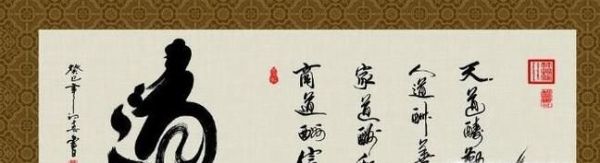 天道酬勤
人道酬善
家道酬和
商道酬信
道
癸巳年 書